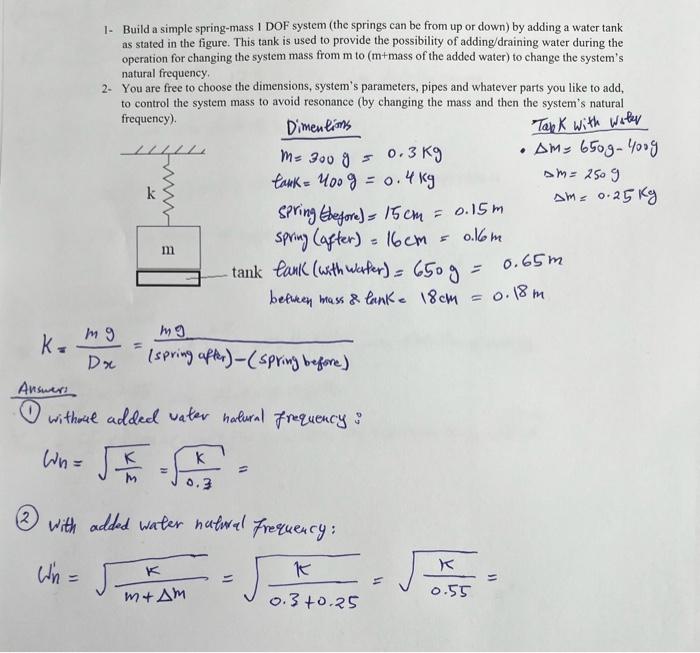 1- Build a simple spring-mass 1 DOF system (the springs can be from up or down) by adding a water tank
as stated in the figure. This tank is used to provide the possibility of adding/draining water during the
operation for changing the system mass from m to (m+mass of the added water) to change the system's
natural frequency.
2- You are free to choose the dimensions, system's parameters, pipes and whatever parts you like to add,
to control the system mass to avoid resonance (by changing the mass and then the system's natural
frequency).
Dimentions
m= 300 g = 0.3 Kg
tank = 400 g = 0.4 Kg
spring (before) = 15 cm = 0.15 m
spring (after) = 16 cm = 0.16 m
tank (with water) = 650 g = 0.65 m
between mass & tank = 18 cm = 0.18 m
Tank with water
• Δm = 650g - 400g
Δm = 250 g
Δm = 0.25 Kg
k
m
tank
K = mg / Dx = mg / (spring after) - (spring before)
Answer:
① without added water natural frequency:
Wn = √(K/m) = √(K/0.3) =
② with added water natural frequency:
W'n = √(K/(m+Δm)) = √(K/(0.3+0.25)) = √(K/0.55) =